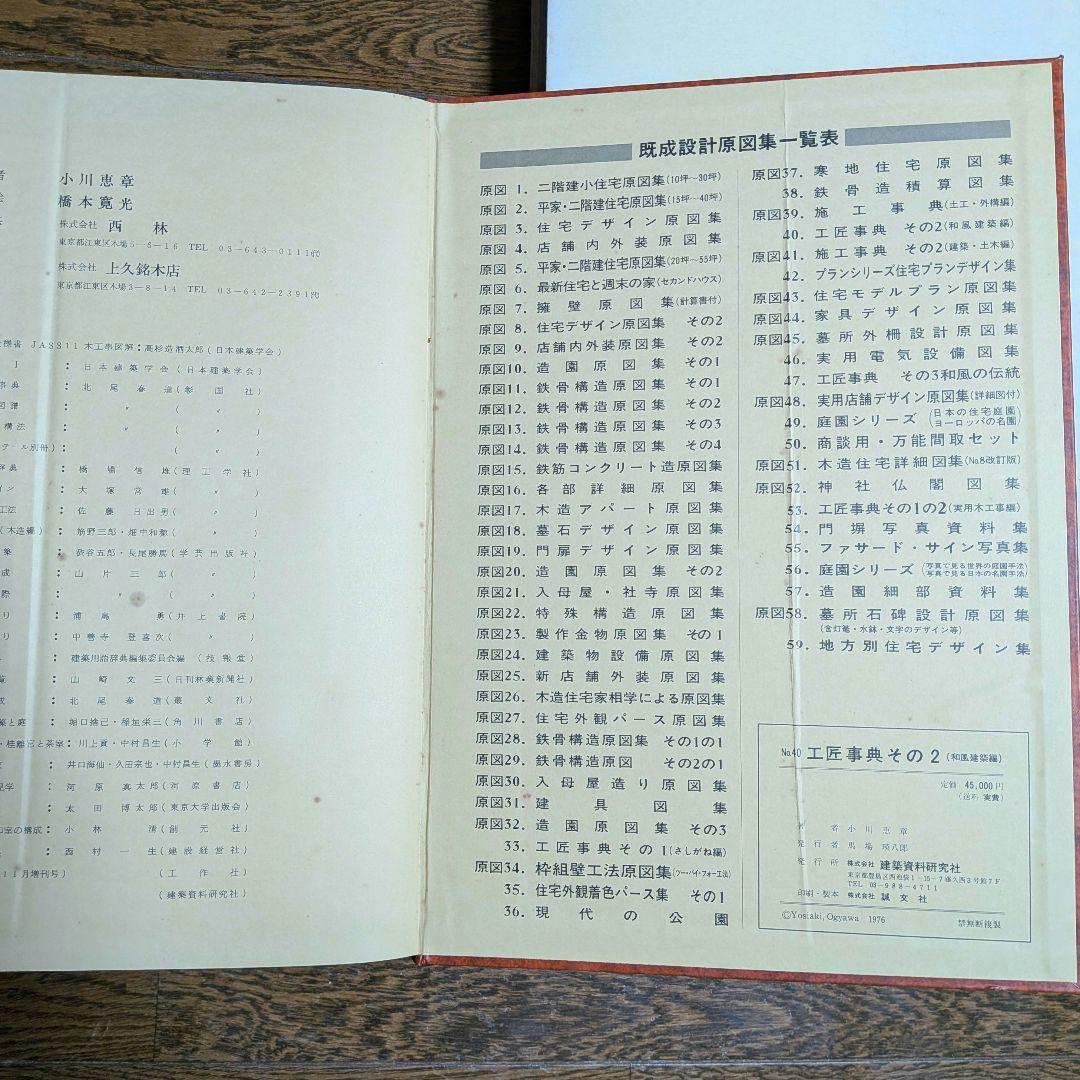 小川恵章
橋本寛光
株式会社 西林
東京都江東区木場5-6-16 TEL 03-643-0111㈹
株式会社 上久銘木店
東京都江東区木場3-8-14 TEL 03-642-2391㈹
様書 JASS11 木工事図解：高杉造酒太郎（日本建築学会）
：日本建築学会（日本建築学会）
事典：北尾春道（彰国社）
図譜：〃（〃）
構法：〃（〃）
テール別冊）：〃（〃）
辞典：橋場信雄（理工学社）
イン：大塚常雄（〃）
工法：佐藤日出男（〃）
（木造編）：筋野三郎・畑中和穂（〃）
集：渋谷五郎・長尾勝馬（学芸出版社）
成：山片三郎（〃）
際：〃（〃）
り：浦島勇（井上書院）
り：中善寺登喜次（〃）
：建築用語辞典編集委員会編（技報堂）
覧：山崎文三（日刊林業新聞社）
成：北尾春道（叢文社）
築と庭：堀口捨己・稲垣栄三（角川書店）
・桂離宮と茶室：川上貢・中村昌生（小学館）
：井口海仙・久田宗也・中村昌生（墨水書房）
見学：河原真太郎（河原書店）
：太田博太郎（東京大学出版会）
和室の構成：小林清（創元社）
：西村一生（建設経営社）
11月増刊号）（工作社）
（建築資料研究社）
既成設計原図集一覧表
原図 1. 二階建小住宅原図集（10坪〜30坪）
原図 2. 平家・二階建住宅原図集（15坪〜40坪）
原図 3. 住宅デザイン原図集
原図 4. 店舗内外装原図集
原図 5. 平家・二階建住宅原図集（20坪〜55坪）
原図 6. 最新住宅と週末の家（セカンドハウス）
原図 7. 擁壁原図集（計算書付）
原図 8. 住宅デザイン原図集 その2
原図 9. 店舗内外装原図集 その2
原図10. 造園原図集 その1
原図11. 鉄骨構造原図集 その1
原図12. 鉄骨構造原図集 その2
原図13. 鉄骨構造原図集 その3
原図14. 鉄骨構造原図集 その4
原図15. 鉄筋コンクリート造原図集
原図16. 各部詳細原図集
原図17. 木造アパート原図集
原図18. 墓石デザイン原図集
原図19. 門扉デザイン原図集
原図20. 造園原図集 その2
原図21. 入母屋・社寺原図集
原図22. 特殊構造原図集
原図23. 製作金物原図集 その1
原図24. 建築物設備原図集
原図25. 新店舗外装原図集
原図26. 木造住宅家相学による原図集
原図27. 住宅外観パース原図集
原図28. 鉄骨構造原図集 その1の1
原図29. 鉄骨構造原図 その2の1
原図30. 入母屋造り原図集
原図31. 建具図集
原図32. 造園原図集 その3
33. 工匠事典その1（さしがね編）
原図34. 枠組壁工法原図集（ツーバイ・フォー工法）
35. 住宅外観着色パース集 その1
36. 現代の公園
原図37. 寒地住宅原図集
38. 鉄骨造積算図集
原図39. 施工事典（土工・外構編）
40. 工匠事典 その2（和風建築編）
原図41. 施工事典 その2（建築・土木編）
42. プランシリーズ住宅プランデザイン集
原図43. 住宅モデルプラン原図集
原図44. 家具デザイン原図集
原図45. 墓所外柵設計原図集
46. 実用電気設備図集
47. 工匠事典 その3和風の伝統
原図48. 実用店舗デザイン原図集（詳細図付）
49. 庭園シリーズ（日本の住宅庭園 ヨーロッパの名園）
50. 商談用・万能間取セット
原図51. 木造住宅詳細図集（No.8改訂版）
原図52. 神社仏閣図集
53. 工匠事典その1の2（実用木工事編）
54. 門塀写真資料集
55. ファサード・サイン写真集
56. 庭園シリーズ（写真で見る世界の庭園手法 写真で見る日本の名園手法）
57. 造園細部資料集
原図58. 墓所石碑設計原図集
（含灯篭・水鉢・文字のデザイン等）
59. 地方別住宅デザイン集
No.40 工匠事典その2（和風建築編）
定価 45,000円
（送料 実費）
著者 小川恵章
発行者 馬場瑛八郎
発行所 株式会社 建築資料研究社
東京都豊島区西池袋1-15-7藤久西3号館7F
TEL 03-988-4711
印刷・製本 株式会社 誠文社
©Yosiaki, Ogyawa 1976 禁無断複製